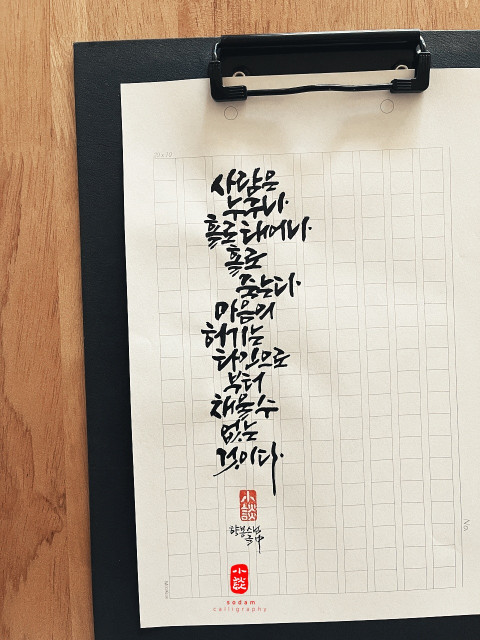 사람은
누구나
홀로 태어나
홀로
죽는다
마음의
허기는
타인으로
부터
채울 수
없는
것이다.
小談
小談
sodam
calligraphy
No.